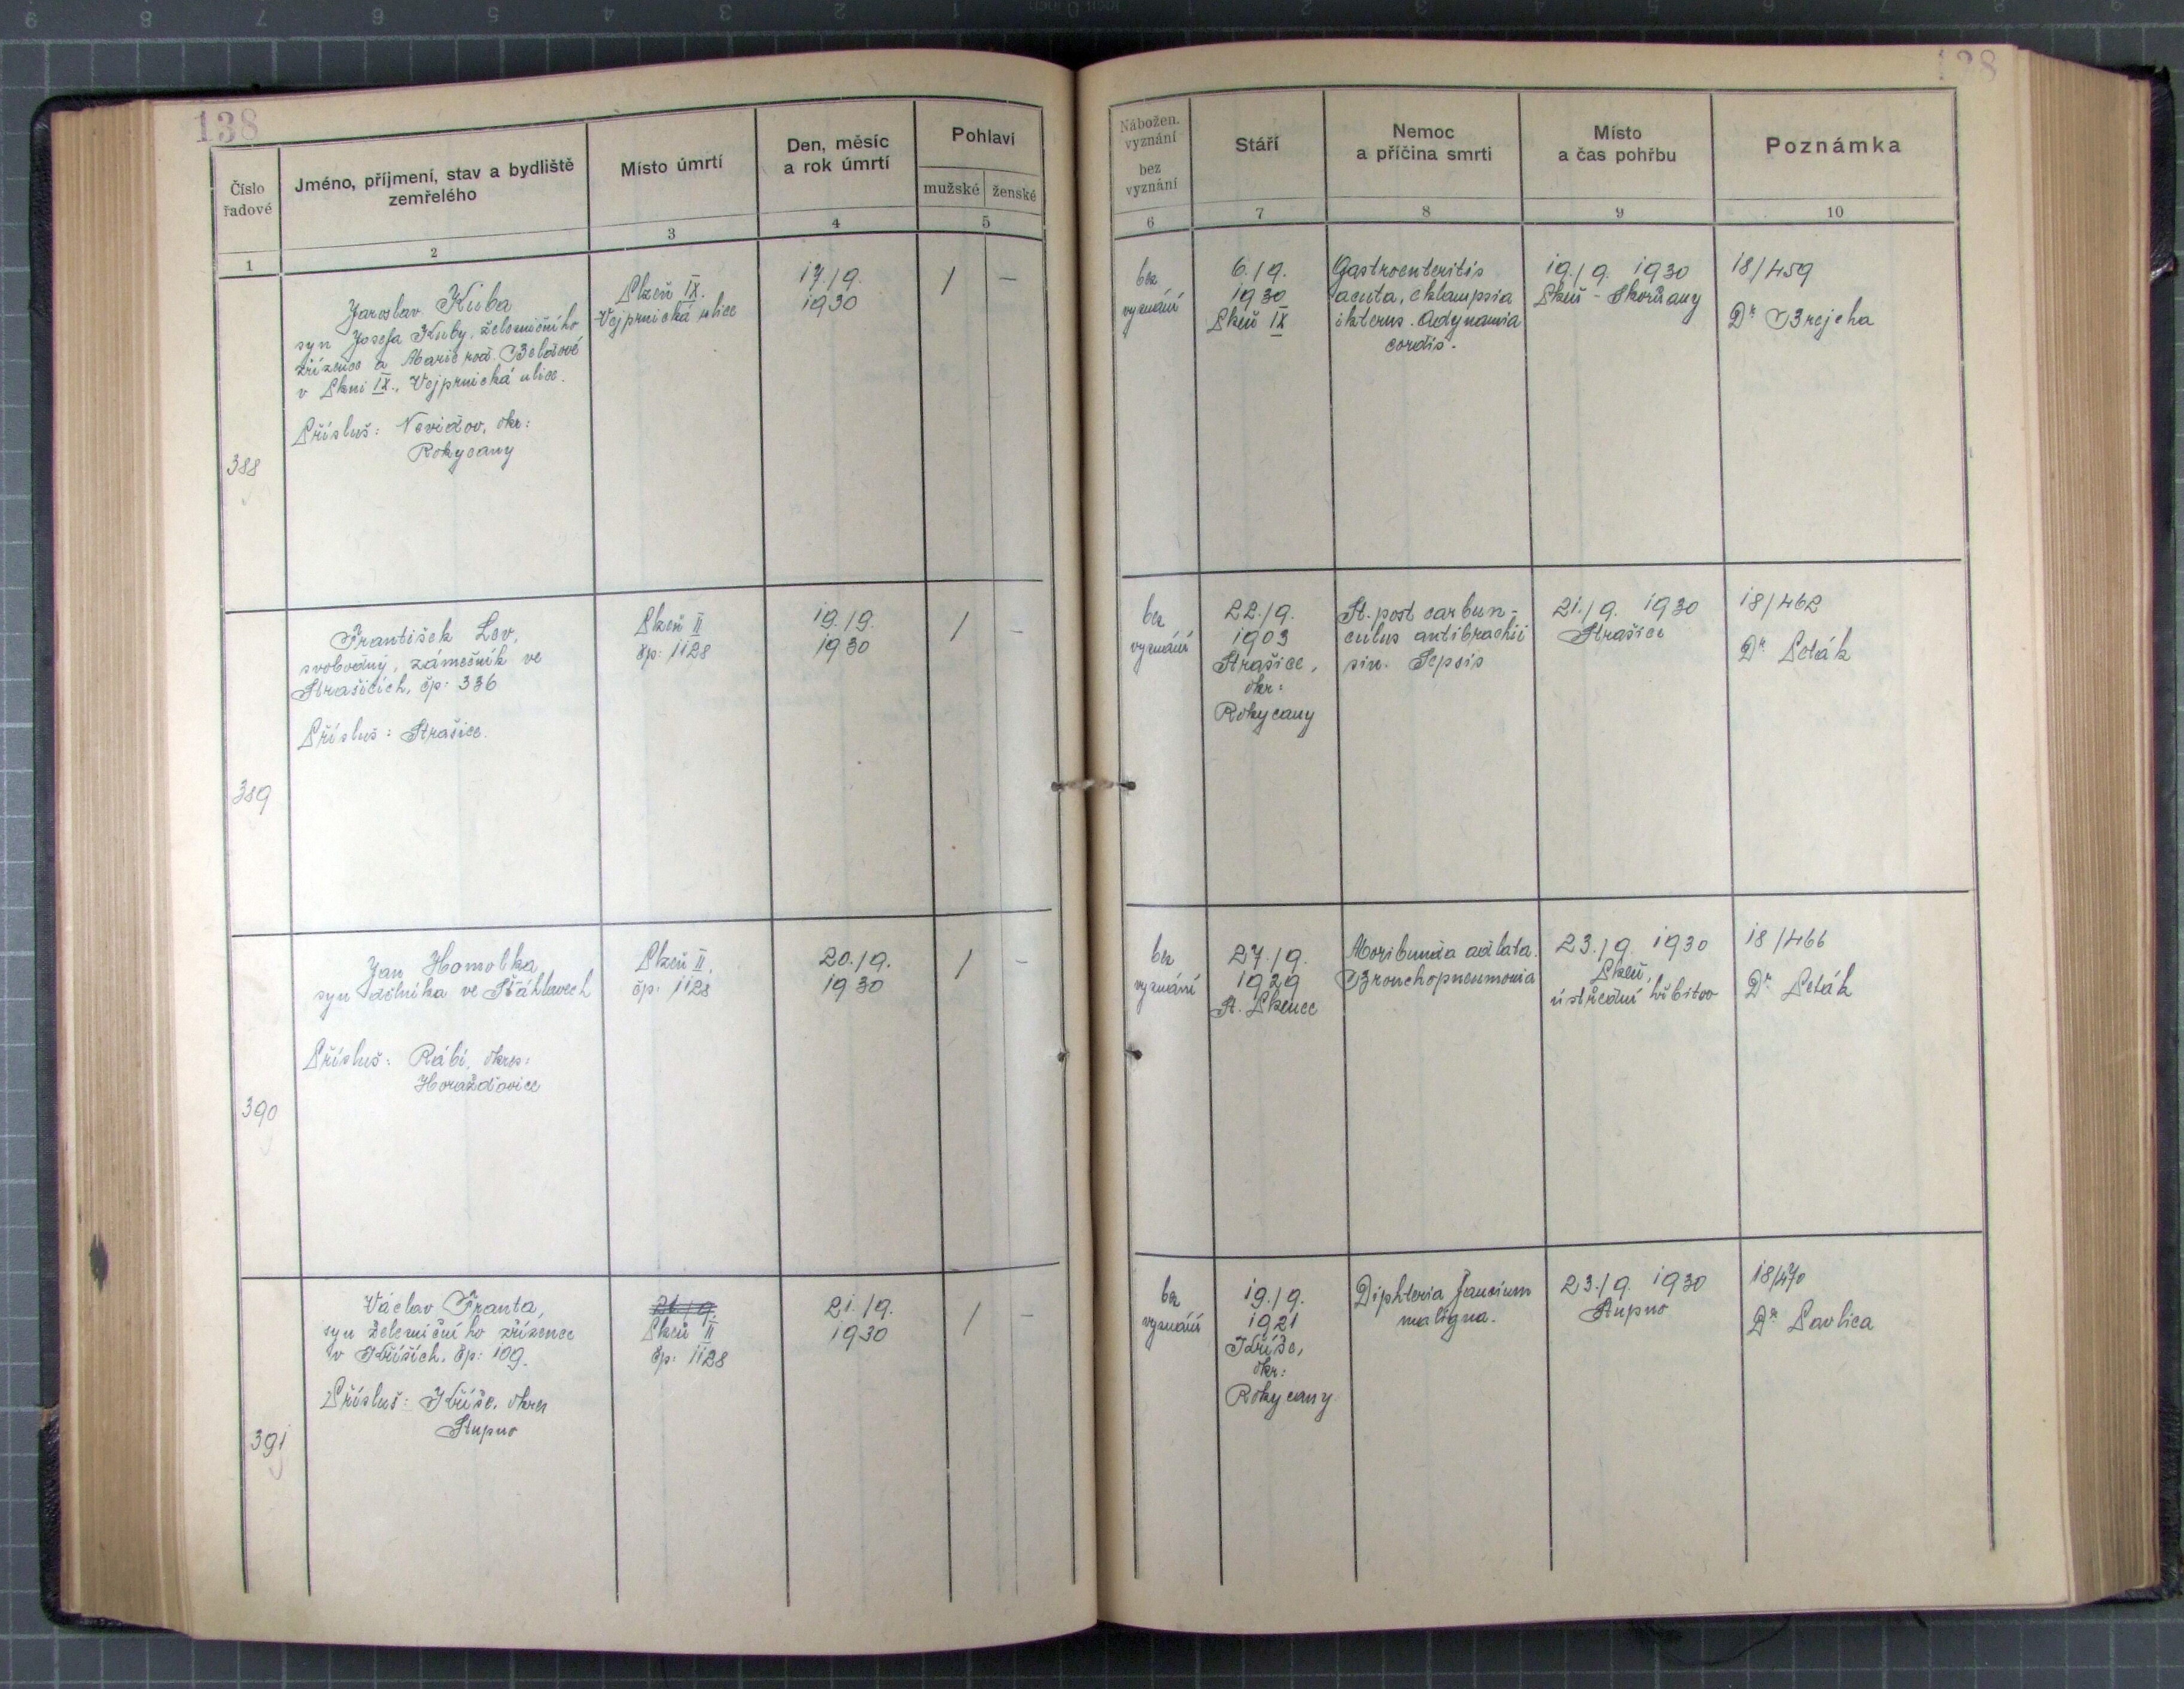 138
138
Číslo řadové
Jméno, příjmení, stav a bydliště zemřelého
Místo úmrtí
Den, měsíc a rok úmrtí
Pohlaví
mužské
ženské
Nábožen. vyznání
bez vyznání
Stáří
Nemoc a příčina smrti
Místo a čas pohřbu
Poznámka
1
2
3
4
5
6
7
8
9
10
388
Jaroslav Kuba
syn Josefa Kuby, železničního
zřízence a Marie roz.
v Plzni IX., Vejprnická ulice.
Přísluš: Nevidov, okr:
Rokycany
Plzeň IX.
Vejprnická ulice
17./9.
1930
/
—
bez
vyznání
6./9.
1930
Plzeň IX
Gastroenteritis
acuta, eklampsia
ikterus. Adynamia
cordis.
19./9. 1930
Plzeň - Skvrňany
18/459
Dr Brejcha
389
František Lev,
svobodný, zámečník ve
Strašicích, čp: 336
Přísluš: Strašice.
Plzeň II
čp: 1128
19./9.
1930
/
—
bez
vyznání
22./9.
1903
Strašice,
okr:
Rokycany
St. post carbun=
culus antibrachii
sin. Sepsis
21./9. 1930
Strašice
18/462
Dr Peták
390
Jan Homolka
syn dělníka ve Šťáhlavech
Přísluš: Rábí, okres:
Horažďovice
Plzeň II.
čp: 1128
20./9.
1930
/
—
bez
vyznání
27./9.
1929
St. Plzenec
Moribunda adlata.
Bronchopneumonia
23./9. 1930
Plzeň,
ústřední hřbitov
18/466
Dr Peták
391
Václav Franta,
syn železničního zřízence
v Křiších, čp: 109.
Přísluš: Kříše, okres
Stupno
21./9.
Plzeň II
čp: 1128
21./9.
1930
/
—
bez
vyznání
19./9.
1921
Kříše,
okr:
Rokycany
Diphteria faucium
maligna.
23./9. 1930
Stupno
18/470
Dr Pavlica